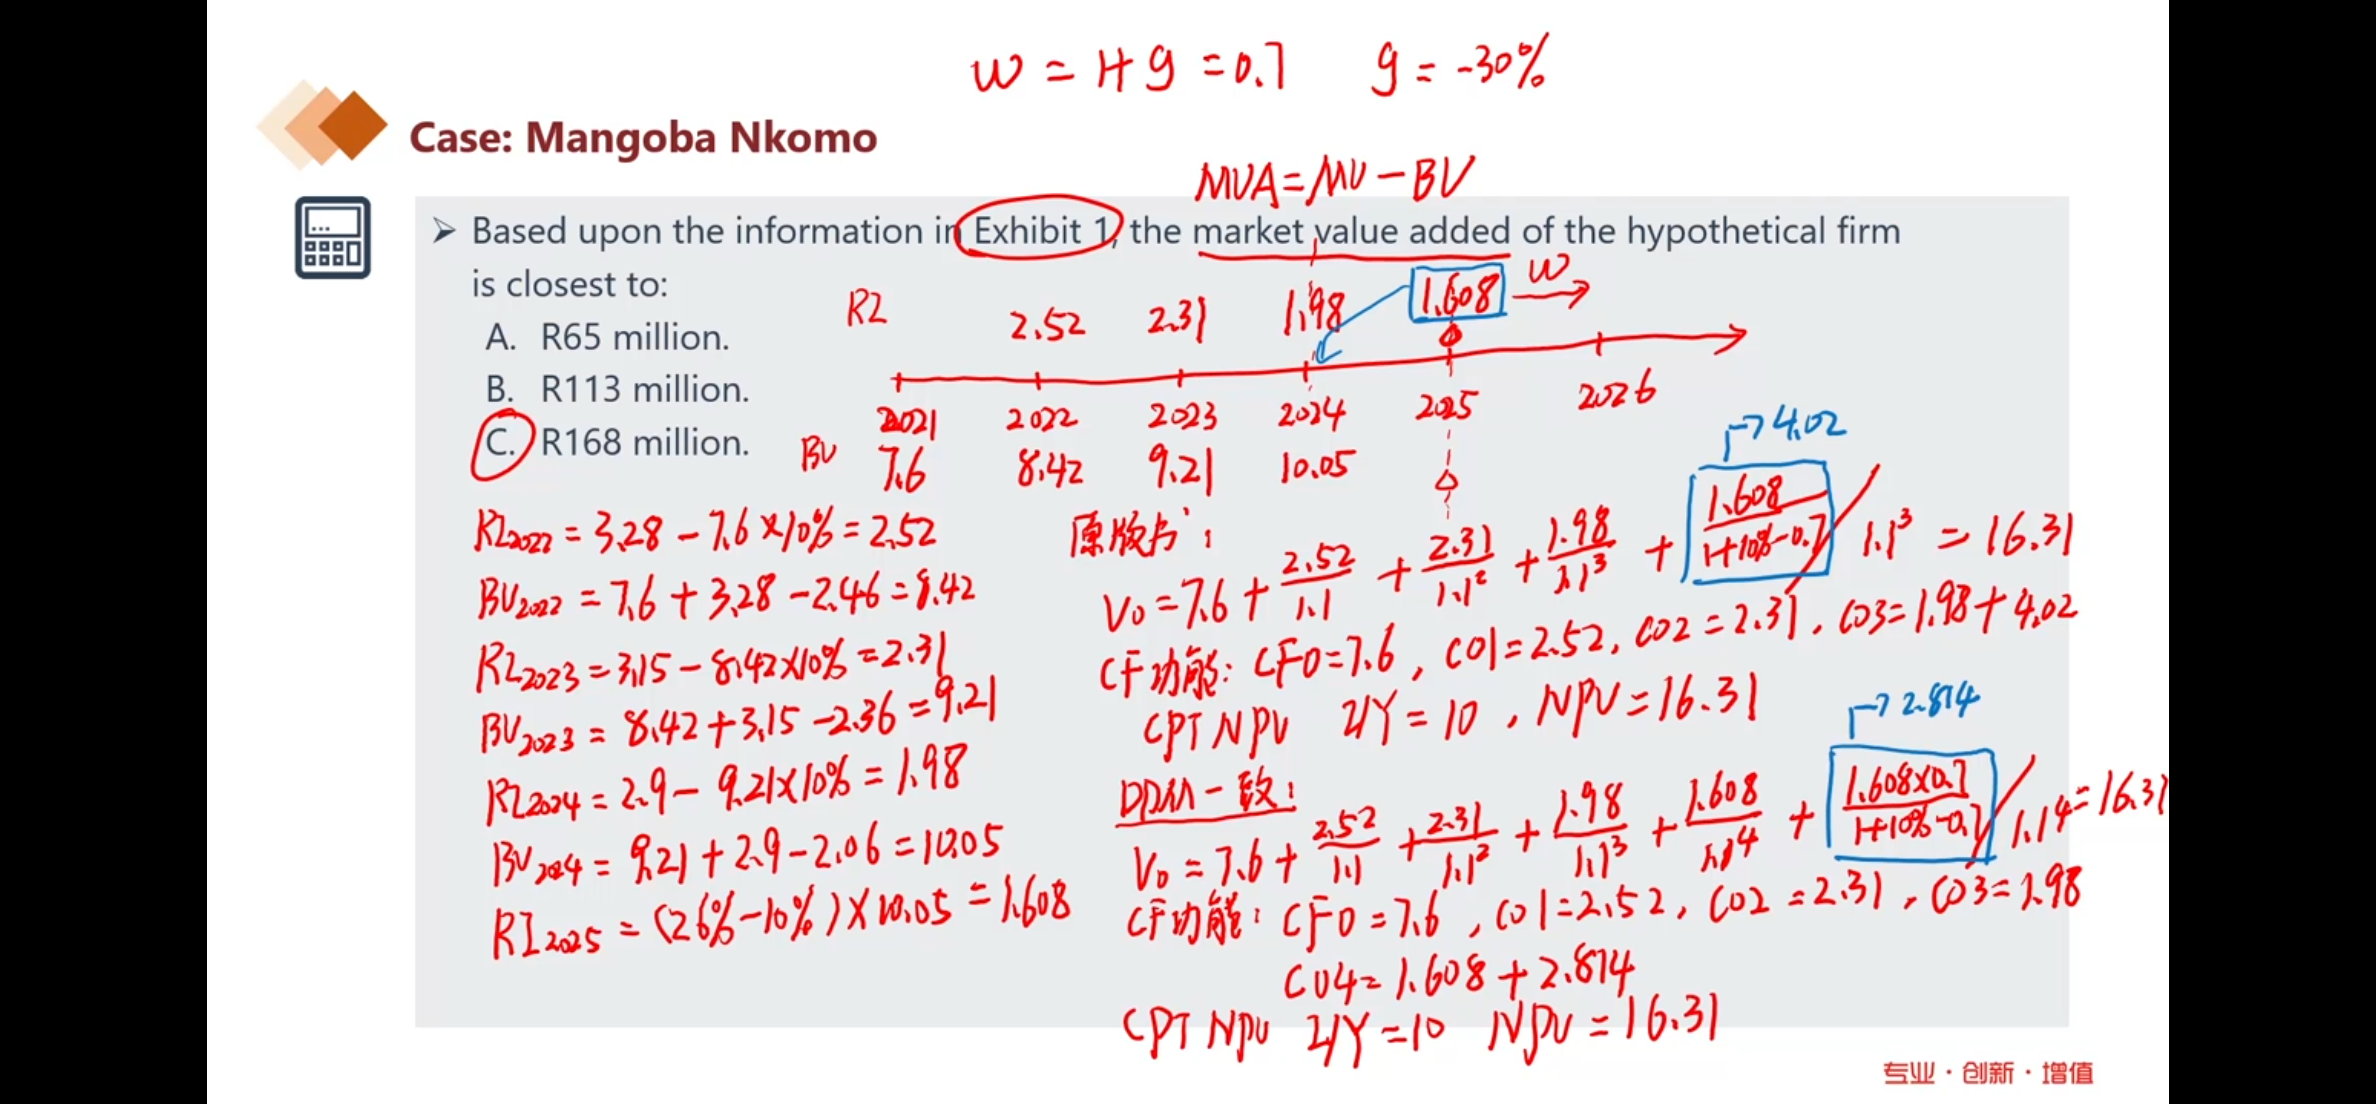 W = 1+g = 0.7 g = -30%
Case: Mangoba Nkomo
MVA = MV - BV
➢ Based upon the information in Exhibit 1, the market value added of the hypothetical firm
is closest to:
A. R65 million.
B. R113 million.
C. R168 million.
RI 2.52 2.31 1.98 1.608 W
2021 2022 2023 2024 2025 2026
BV 7.6 8.42 9.21 10.05
RI2022 = 3.28 - 7.6 × 10% = 2.52
BV2022 = 7.6 + 3.28 - 2.46 = 8.42
RI2023 = 3.15 - 8.42 × 10% = 2.31
BV2023 = 8.42 + 3.15 - 2.36 = 9.21
RI2024 = 2.9 - 9.21 × 10% = 1.98
BV2024 = 9.21 + 2.9 - 2.06 = 10.05
RI2025 = (26% - 10%) × 10.05 = 1.608
原版书:
→ 4.02
V0 = 7.6 + 2.52/1.1 + 2.31/1.1² + 1.98/1.1³ + 1.608/(1+10%-0.7) / 1.1³ = 16.31
CF功能: CF0=7.6, C01=2.52, C02=2.31, C03=1.98+4.02
CPT NPV I/Y=10, NPV=16.31
→ 2.814
DDM一致:
V0 = 7.6 + 2.52/1.1 + 2.31/1.1² + 1.98/1.1³ + 1.608/1.1⁴ + 1.608×0.7/(1+10%-0.7) / 1.1⁴ = 16.31
CF功能: CF0=7.6, C01=2.52, C02=2.31, C03=1.98
C04=1.608+2.814
CPT NPV I/Y=10 NPV=16.31
专业·创新·增值